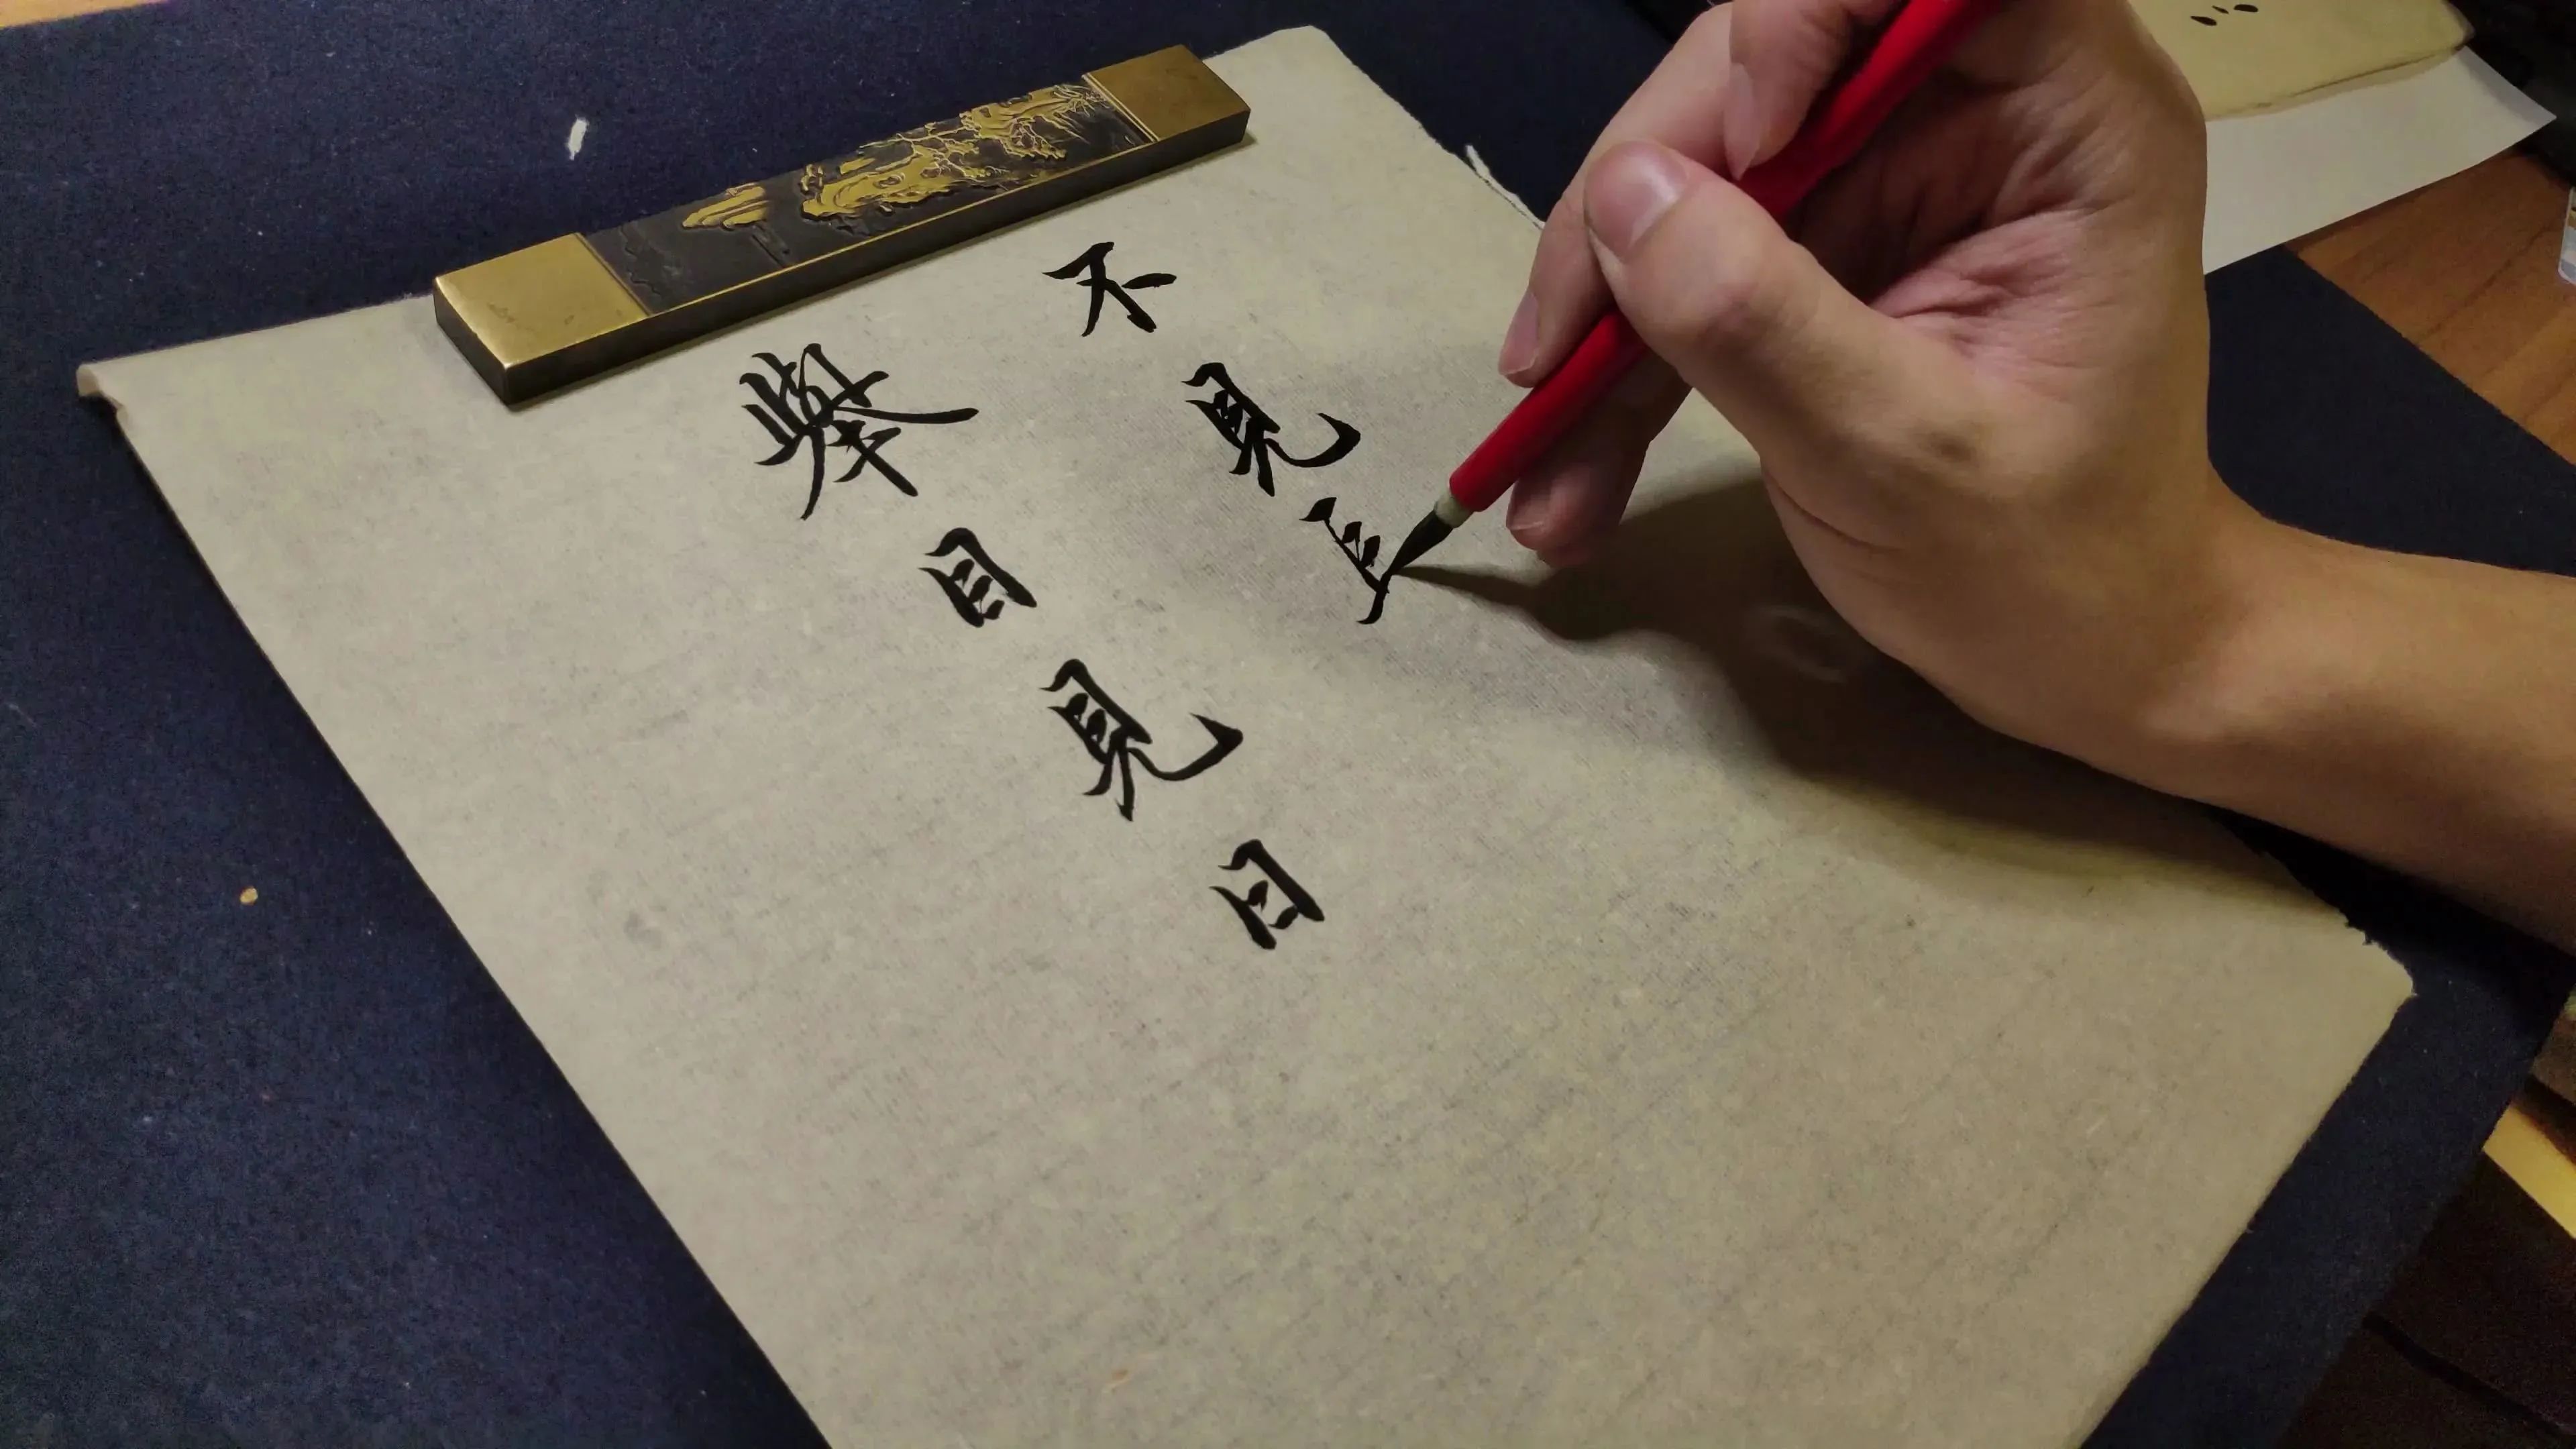 舉目見日
不見